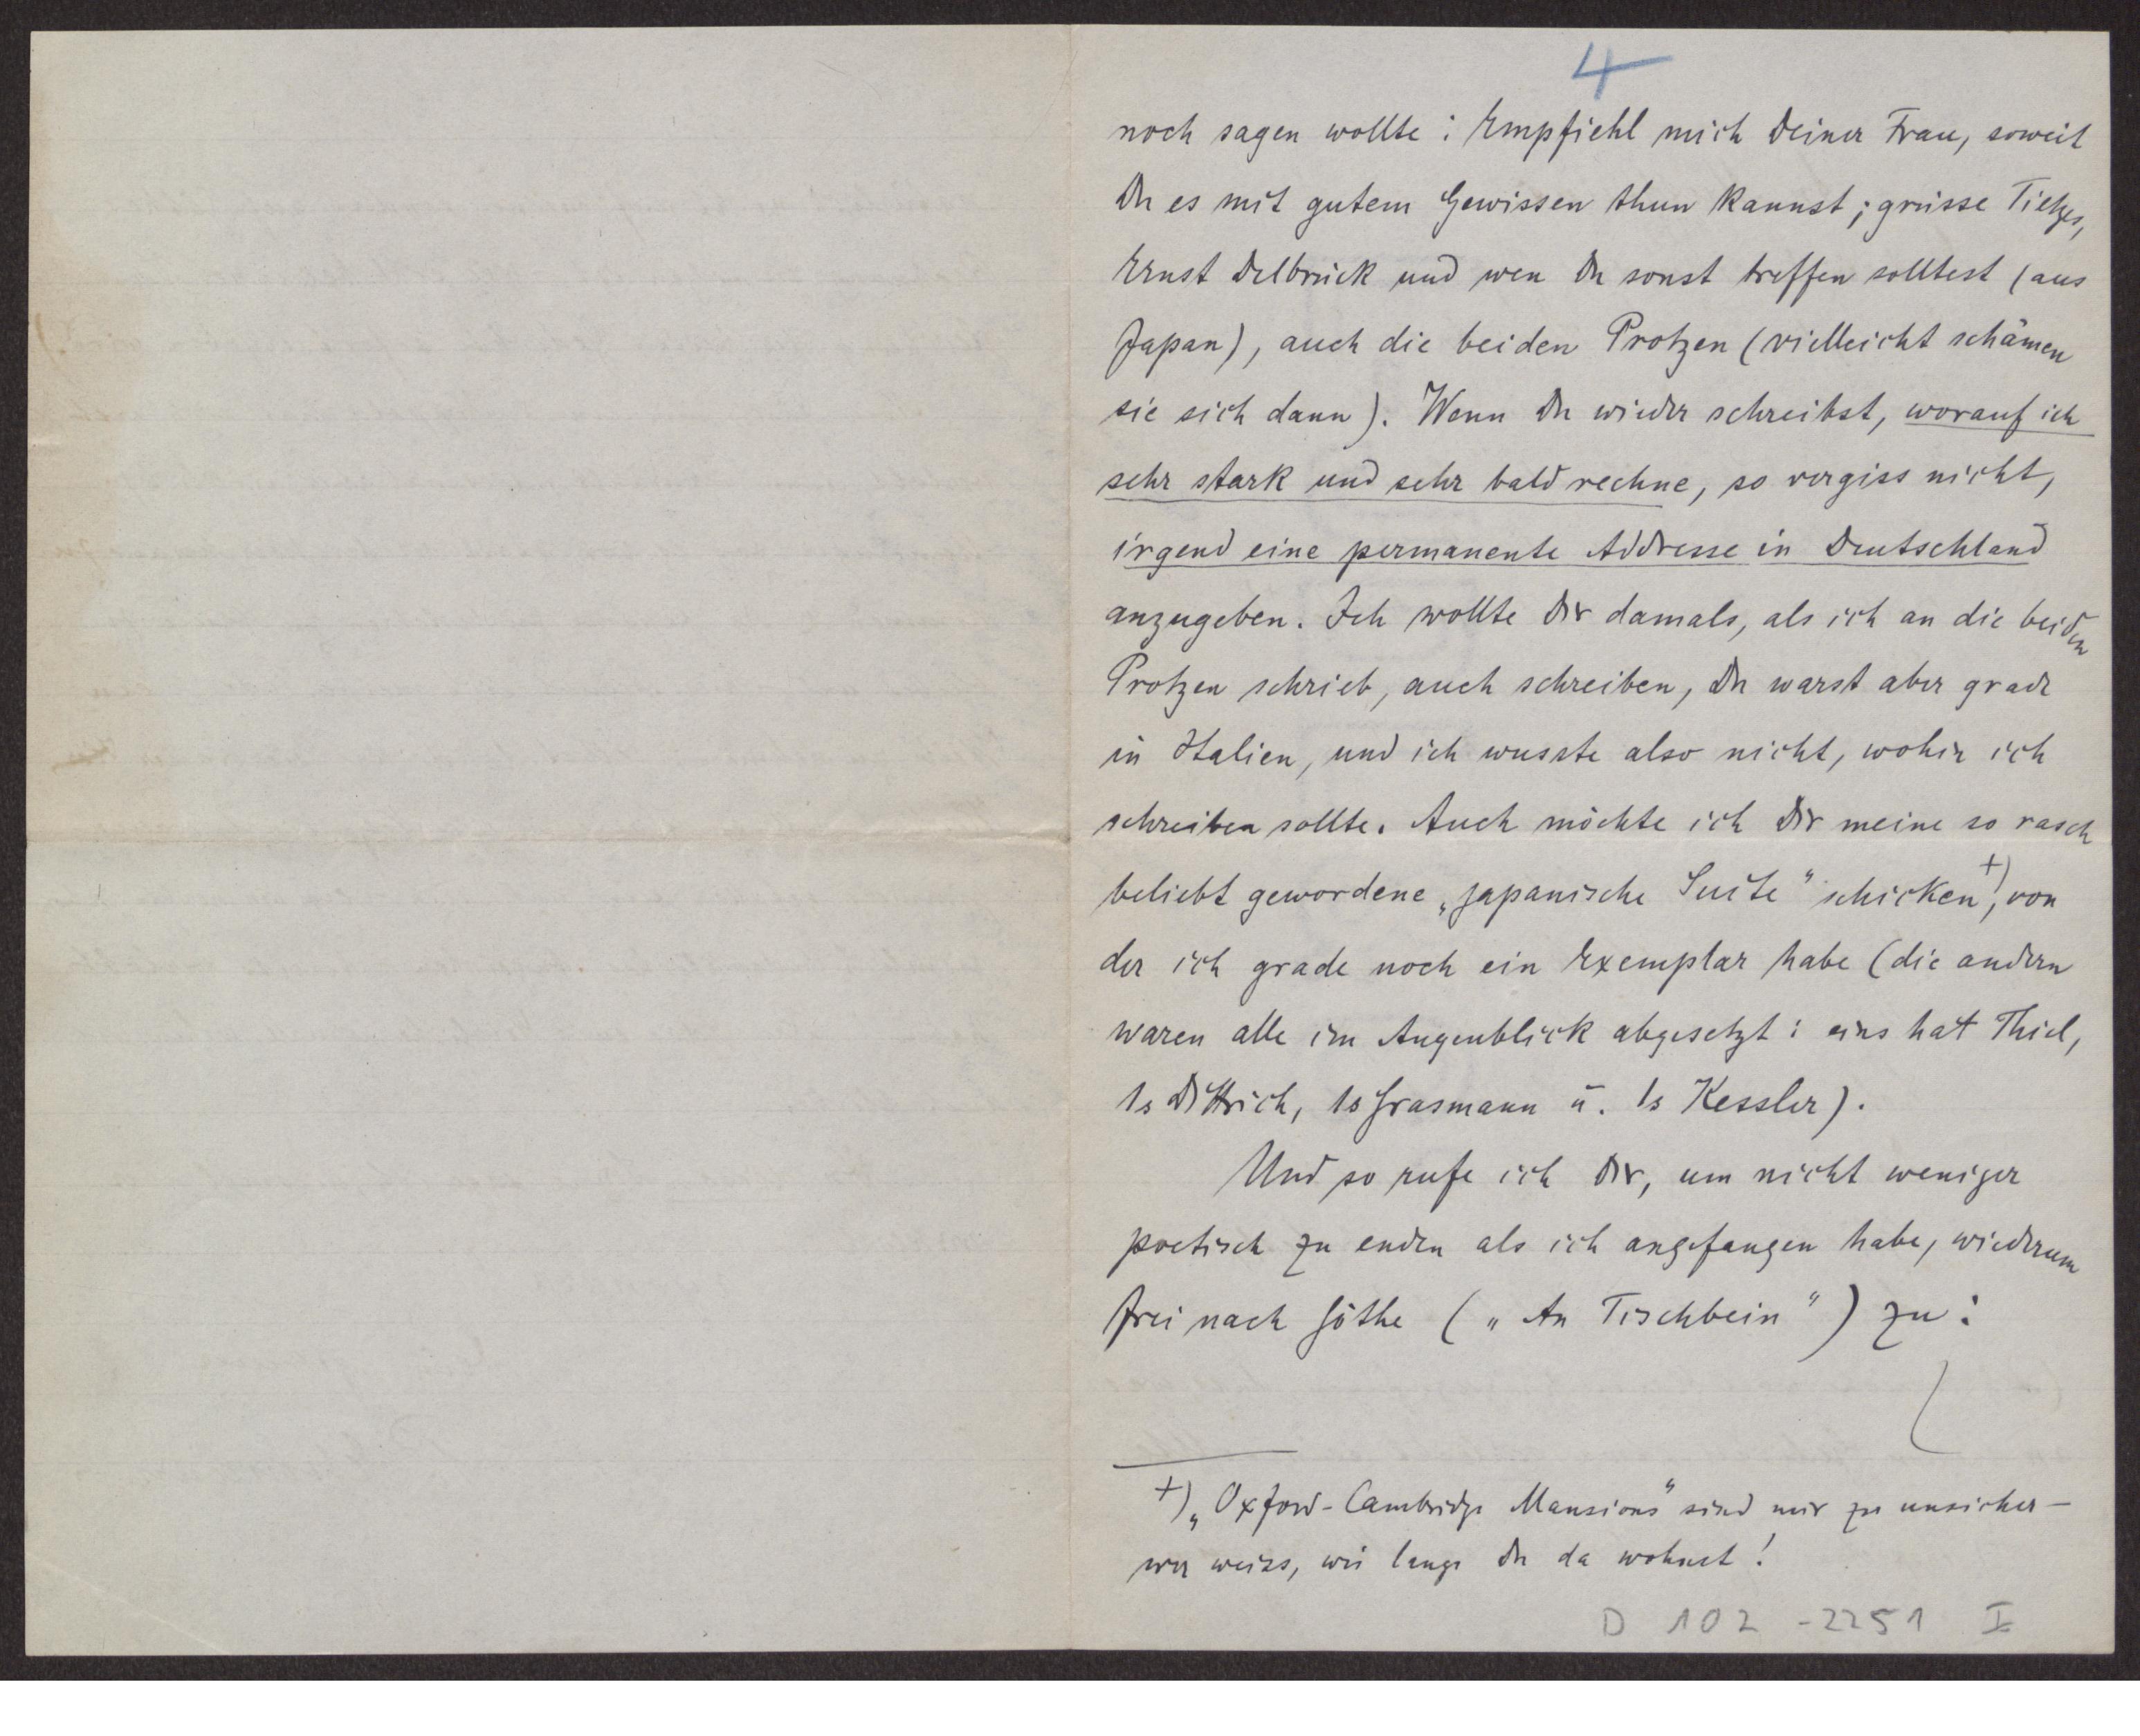 4
noch sagen wollte: Empfiehl mich Deiner Frau, soweit
Du es mit gutem Gewissen thun kannst; grüsse Tietzes,
Ernst Delbrück und wen Du sonst treffen solltest (aus
Japan), auch die beiden Protzen (vielleicht schämen
sie sich dann). Wenn Du wieder schreibst, worauf ich
sehr stark und sehr bald rechne, so vergiss nicht,
irgend eine permanente Addresse in Deutschland
anzugeben. Ich wollte Dir damals, als ich an die beiden
Protzen schrieb, auch schreiben, Du warst aber grade
in Italien, und ich wusste also nicht, wohin ich
schreiben sollte. Auch möchte ich Dir meine so rasch
beliebt gewordene „japanische Suite" schicken+), von
der ich grade noch ein Exemplar habe (die andern
waren alle im Augenblick abgesetzt: eins hat Thiel,
1s Dittrich, 1s Grasmann u. 1s Kessler).
Und so rufe ich Dir, um nicht weniger
poetisch zu enden als ich angefangen habe, wiederum
frei nach Göthe („An Tischbein") zu:
+) „Oxford-Cambridge Mansions" sind mir zu unsicher –
wer weiss, wie lange Du da wohnst!
D 102 - 2251 I